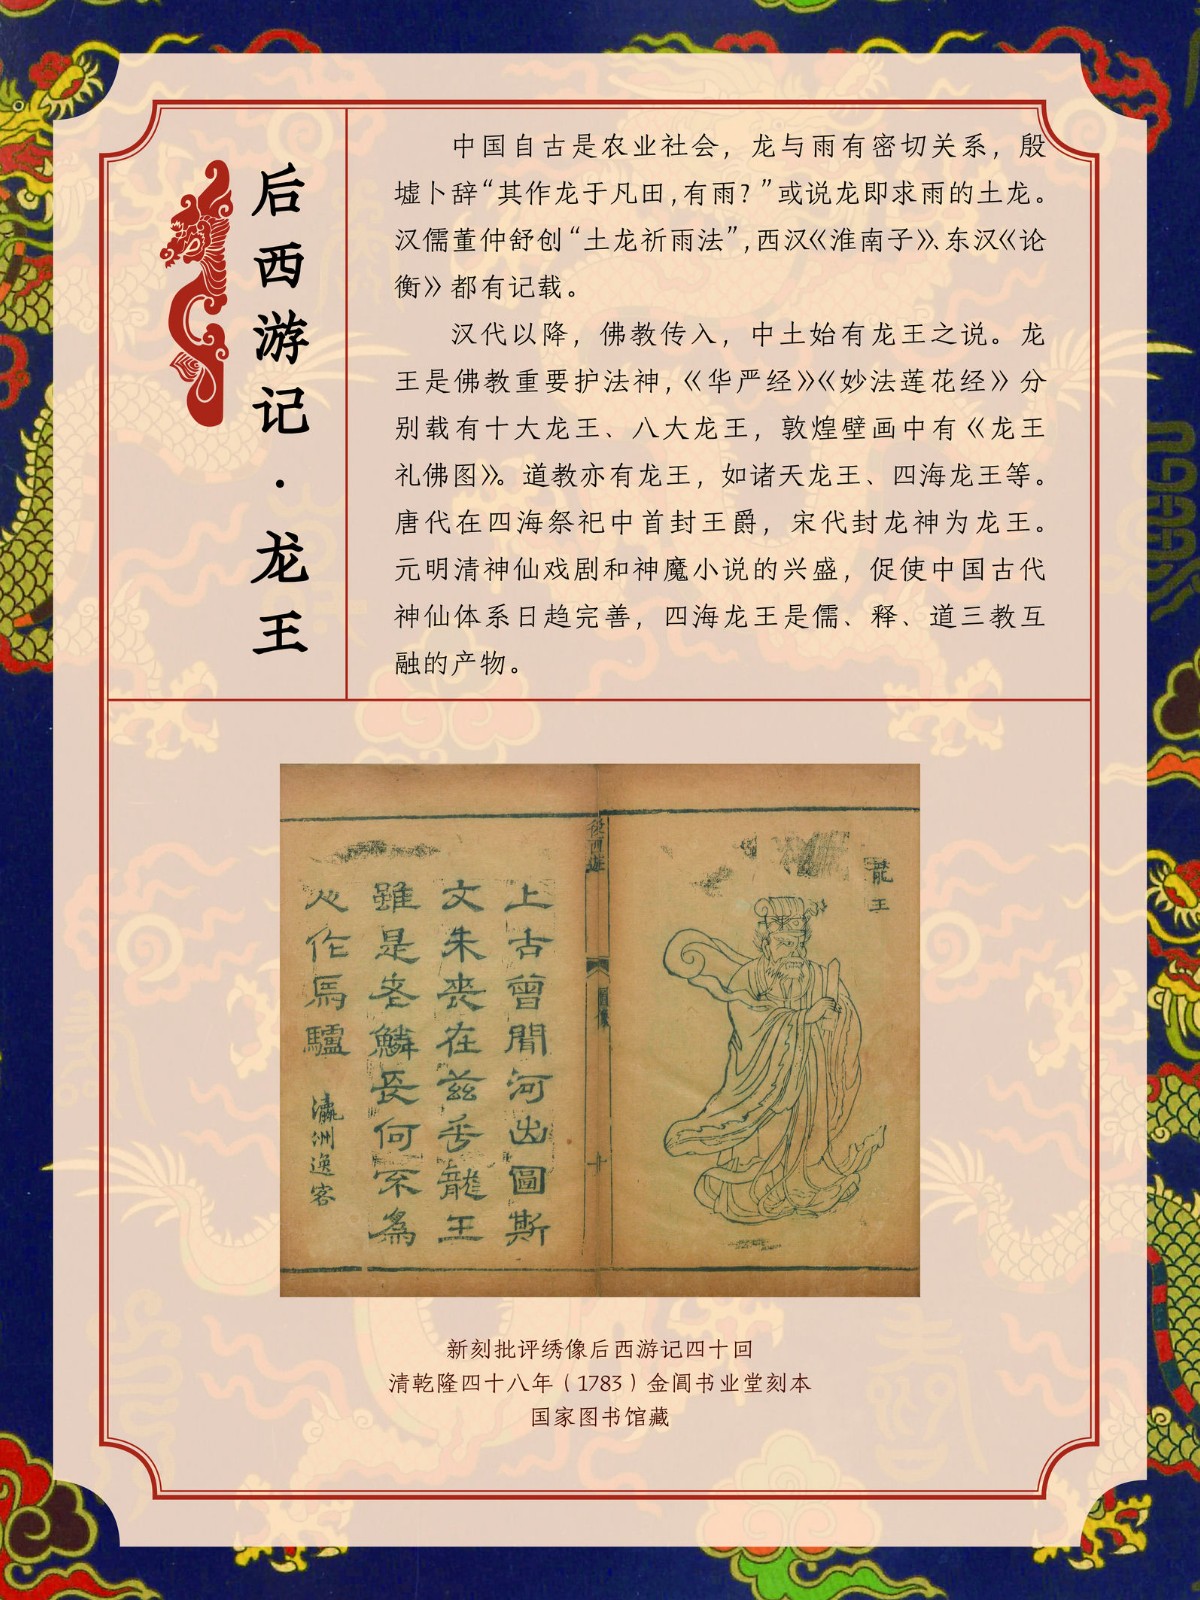 后西游记·龙王
中国自古是农业社会，龙与雨有密切关系，殷
墟卜辞“其作龙于凡田，有雨？”或说龙即求雨的土龙。
汉儒董仲舒创“土龙祈雨法”，西汉《淮南子》、东汉《论
衡》都有记载。
汉代以降，佛教传入，中土始有龙王之说。龙
王是佛教重要护法神，《华严经》《妙法莲花经》分
别载有十大龙王、八大龙王，敦煌壁画中有《龙王
礼佛图》。道教亦有龙王，如诸天龙王、四海龙王等。
唐代在四海祭祀中首封王爵，宋代封龙神为龙王。
元明清神仙戏剧和神魔小说的兴盛，促使中国古代
神仙体系日趋完善，四海龙王是儒、释、道三教互
融的产物。
龍王
後西遊
圖像
十
上古曾聞河出圖斯
文未喪在茲乎龍王
雖是老鱗長何不為
人作馬驢
瀛洲逸客
新刻批评绣像后西游记四十回
清乾隆四十八年（1783）金阊书业堂刻本
国家图书馆藏